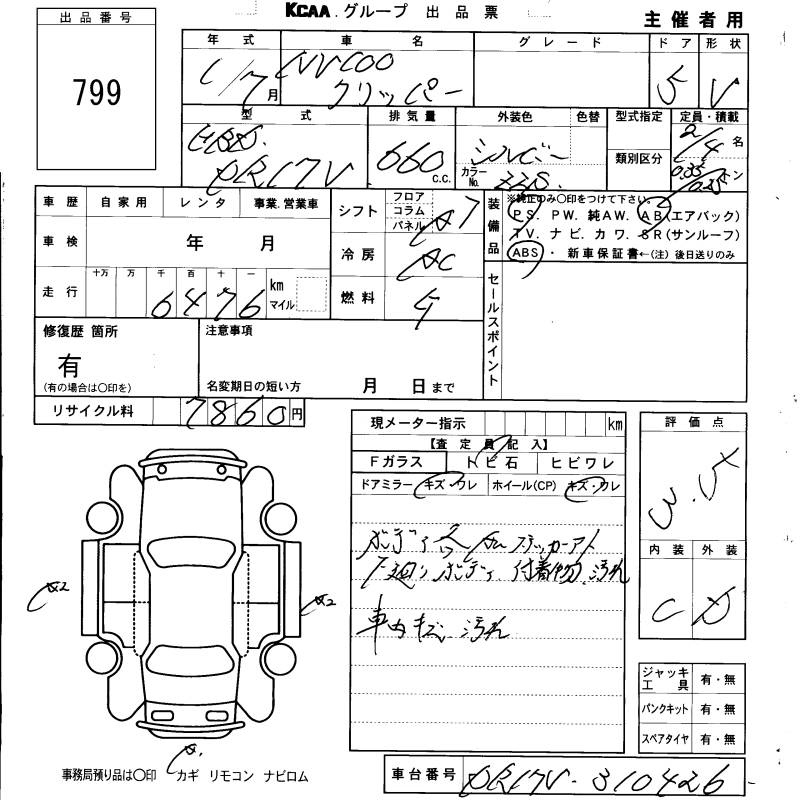 KCAA グループ 出品票
主催者用
出品番号
799
年式 車名 グレード ドア 形状
月 NV100 クリッパー 5 V
型式 排気量 外装色 色替 型式指定 定員・積載
HBD DR17V 660 C.C. シルバー カラーNo. Z2S 類別区分 2/4 名
トン
車歴 自家用 レンタ 事業.営業車
車検 年 月
走行 十万 万 千 百 十 一 km マイル
6476
シフト フロア コラム パネル
冷房 AC
燃料
装備品 ※純正のみ〇印をつけて下さい。
PS. PW. 純AW. AB(エアバック)
TV. ナビ. カワ. SR(サンルーフ)
ABS・ 新車保証書←(注)後日送りのみ
セールスポイント
修復歴 箇所 注意事項
有
(有の場合は〇印を) 名変期日の短い方 月 日まで
リサイクル料 7860 円
現メーター指示 km
【査定員記入】
Fガラス トビ石 ヒビワレ
ドアミラー キズ・ワレ ホイール(CP) キズ・ワレ
ステッカーアト
下廻り ボディ 付着物 汚れ
車内キズ 汚れ
評価点
3.5
内装 外装
C D
ジャッキ工具 有・無
パンクキット 有・無
スペアタイヤ 有・無
事務局預り品は〇印 カギ リモコン ナビロム
車台番号 DR17V-310426